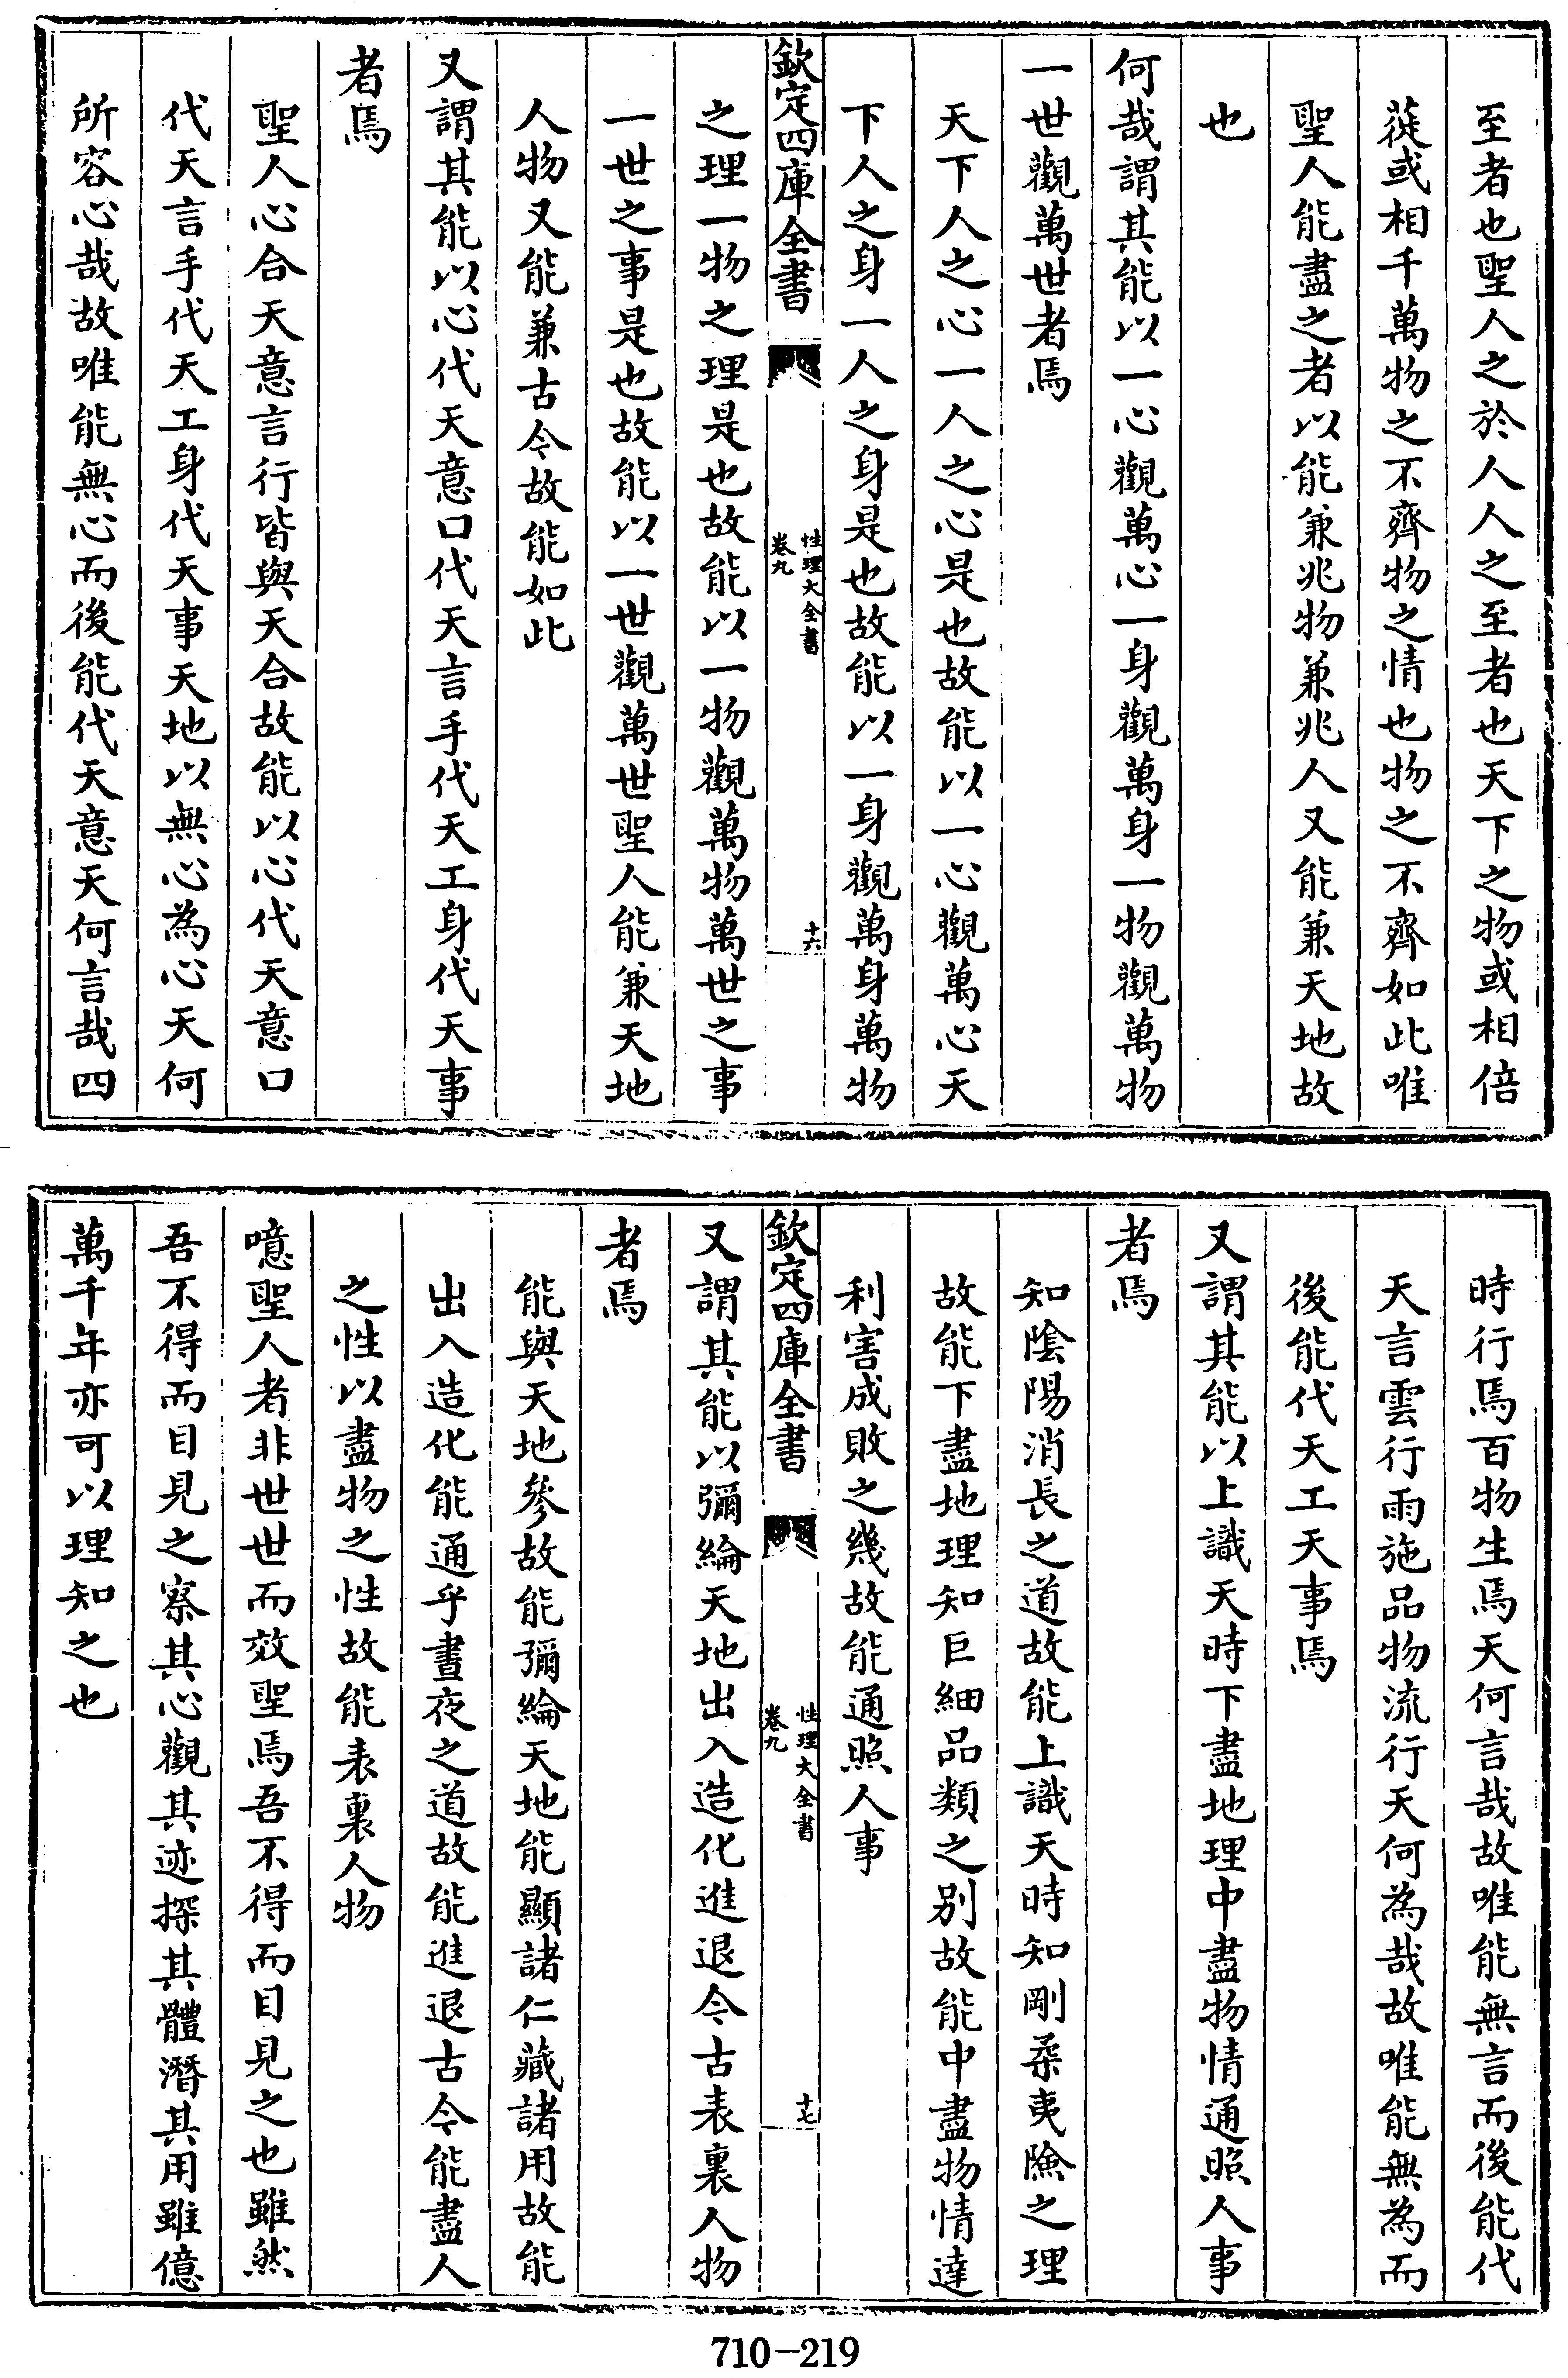 至者也聖人之於人人之至者也天下之物或相倍
蓰或相千萬物之不齊物之情也物之不齊如此唯
聖人能盡之者以能兼兆物兼兆人又能兼天地故
也
何哉謂其能以一心觀萬心一身觀萬身一物觀萬物
一世觀萬世者焉
天下人之心一人之心是也故能以一心觀萬心天
下人之身一人之身是也故能以一身觀萬身萬物
欽定四庫全書
性理大全書
卷九
十六
之理一物之理是也故能以一物觀萬物萬世之事
一世之事是也故能以一世觀萬世聖人能兼天地
人物又能兼古今故能如此
又謂其能以心代天意口代天言手代天工身代天事
者焉
聖人心合天意言行皆與天合故能以心代天意口
代天言手代天工身代天事天地以無心為心天何
所容心哉故唯能無心而後能代天意天何言哉四
時行焉百物生焉天何言哉故唯能無言而後能代
天言雲行雨施品物流行天何為哉故唯能無為而
後能代天工天事焉
又謂其能以上識天時下盡地理中盡物情通照人事
者焉
知陰陽消長之道故能上識天時知剛柔夷險之理
故能下盡地理知巨細品類之別故能中盡物情達
利害成敗之幾故能通照人事
欽定四庫全書
性理大全書
卷九
十七
又謂其能以彌綸天地出入造化進退今古表裏人物
者焉
能與天地參故能彌綸天地能顯諸仁藏諸用故能
出入造化能通乎晝夜之道故能進退古今能盡人
之性以盡物之性故能表裏人物
噫聖人者非世世而效聖焉吾不得而目見之也雖然
吾不得而目見之察其心觀其迹探其體潛其用雖億
萬千年亦可以理知之也
710-219